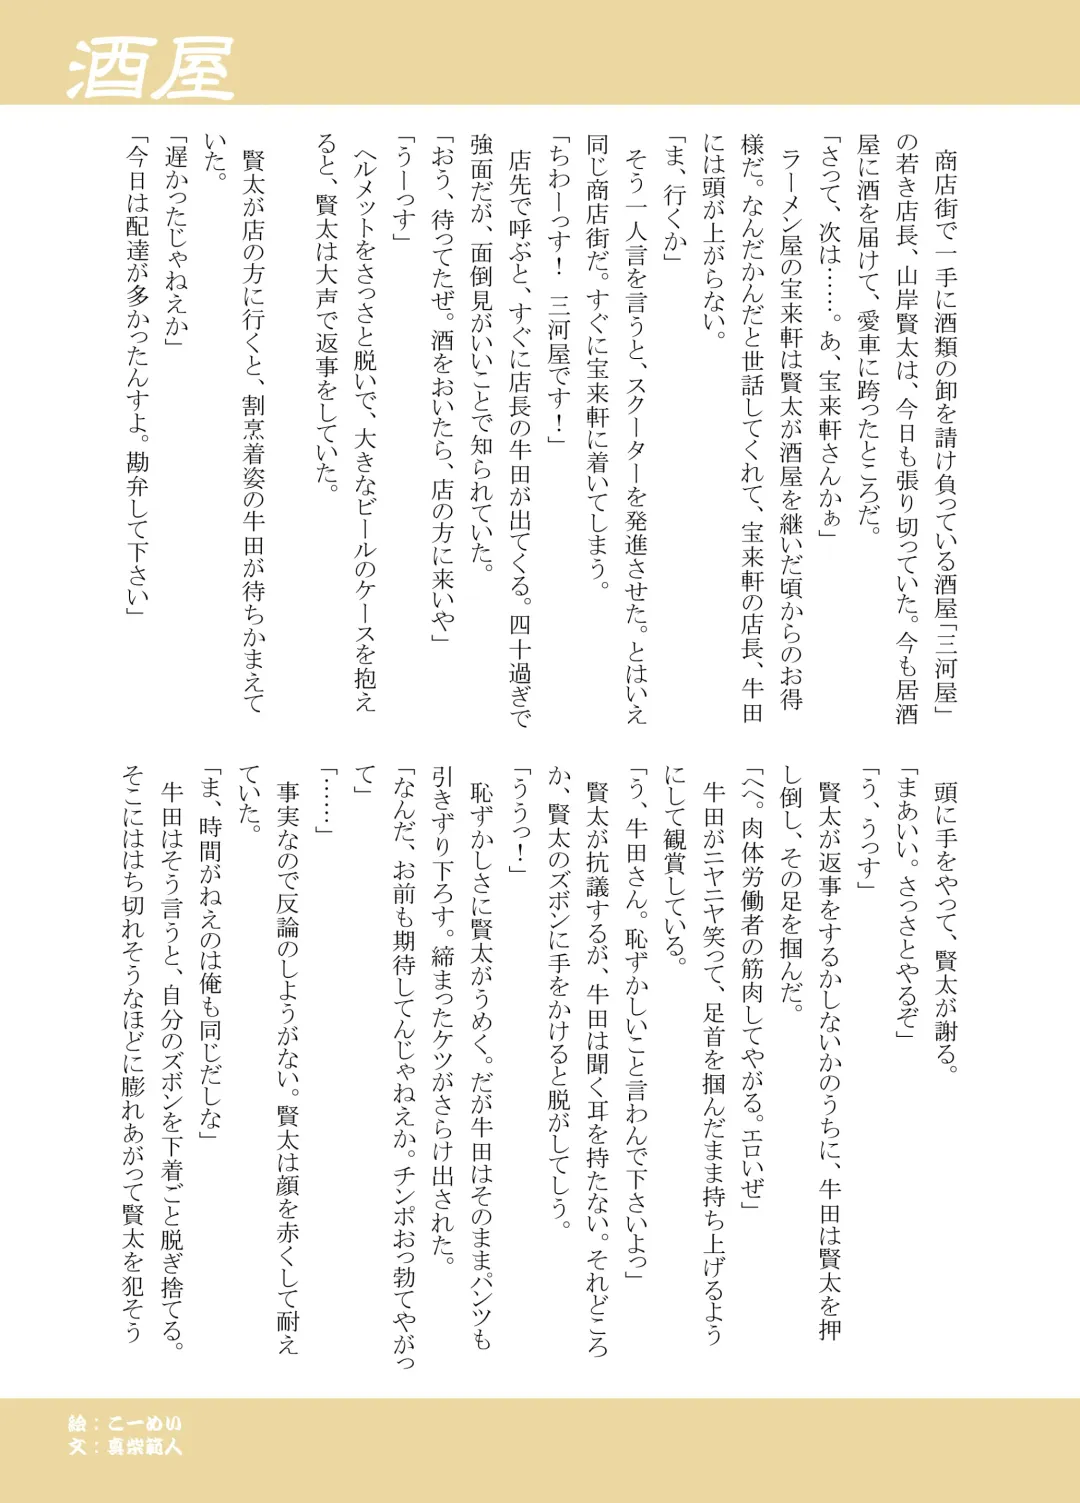 酒屋
商店街で一手に酒類の卸を請け負っている酒屋「三河屋」
の若き店長、山岸賢太は、今日も張り切っていた。今も居酒
屋に酒を届けて、愛車に跨ったところだ。
「さって、次は……。あ、宝来軒さんかぁ」
ラーメン屋の宝来軒は賢太が酒屋を継いだ頃からのお得
様だ。なんだかんだと世話してくれて、宝来軒の店長、牛田
には頭が上がらない。
「ま、行くか」
そう一人言を言うと、スクーターを発進させた。とはいえ
同じ商店街だ。すぐに宝来軒に着いてしまう。
「ちわーっす！　三河屋です！」
店先で呼ぶと、すぐに店長の牛田が出てくる。四十過ぎで
強面だが、面倒見がいいことで知られていた。
「おう、待ってたぜ。酒をおいたら、店の方に来いや」
「うーっす」
ヘルメットをさっさと脱いで、大きなビールのケースを抱え
ると、賢太は大声で返事をしていた。
賢太が店の方に行くと、割烹着姿の牛田が待ちかまえて
いた。
「遅かったじゃねえか」
「今日は配達が多かったんすよ。勘弁して下さい」
頭に手をやって、賢太が謝る。
「まあいい。さっさとやるぞ」
「う、うっす」
賢太が返事をするかしないかのうちに、牛田は賢太を押
し倒し、その足を掴んだ。
「へへ。肉体労働者の筋肉してやがる。エロいぜ」
牛田がニヤニヤ笑って、足首を掴んだまま持ち上げるよう
にして観賞している。
「う、牛田さん。恥ずかしいこと言わんで下さいよっ」
賢太が抗議するが、牛田は聞く耳を持たない。それどころ
か、賢太のズボンに手をかけると脱がしてしまう。
「ううっ！」
恥ずかしさに賢太がうめく。だが牛田はそのままパンツも
引きずり下ろす。締まったケツがさらけ出された。
「なんだ、お前も期待してんじゃねえか。チンポおっ勃てやがっ
て」
「……」
事実なので反論のしようがない。賢太は顔を赤くして耐え
ていた。
「ま、時間がねえのは俺も同じだしな」
牛田はそう言うと、自分のズボンを下着ごと脱ぎ捨てる。
そこにははち切れそうなほどに膨れあがって賢太を犯そう
絵：こーめい
文：真柴範人